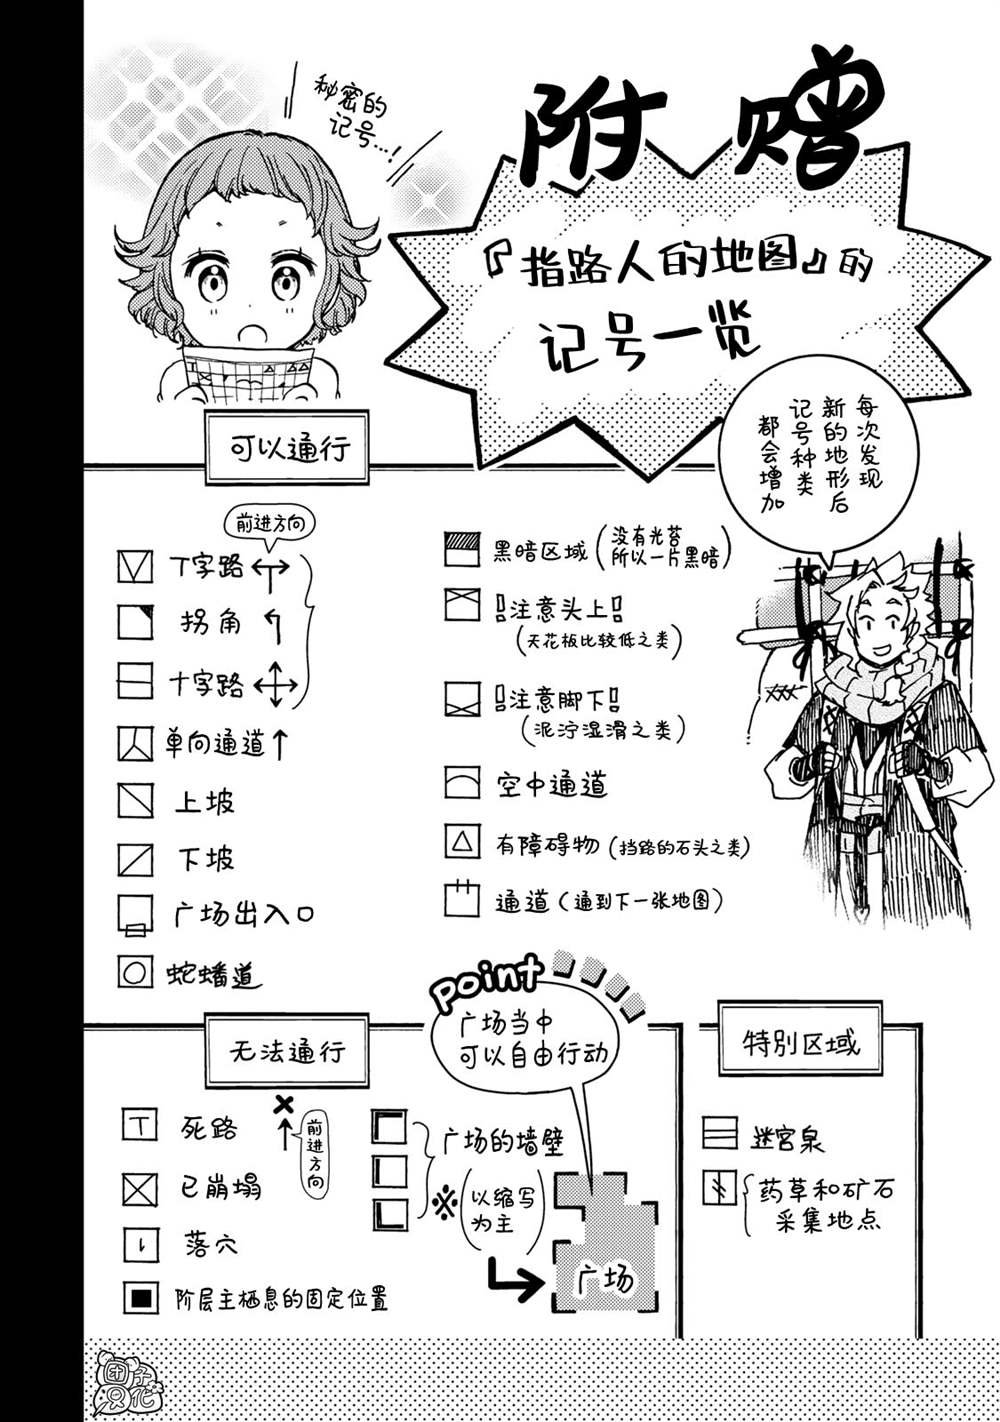 附赠
『指路人的地图』的
记号一览
秘密的
记号…！
每次发现
新的地形后
记号种类
都会增加
可以通行
前进方向
T字路
拐角
十字路
单向通道
上坡
下坡
广场出入口
蛇蟠道
黑暗区域（没有光苔
所以一片黑暗）
！注意头上！
（天花板比较低之类）
！注意脚下！
（泥泞湿滑之类）
空中通道
有障碍物（挡路的石头之类）
通道（通到下一张地图）
Point
广场当中
可以自由行动
无法通行
前进方向
死路
已崩塌
落穴
阶层主栖息的固定位置
广场的墙壁
※（以缩写
为主）
广场
特别区域
迷宫泉
药草和矿石
采集地点
团子
汉化